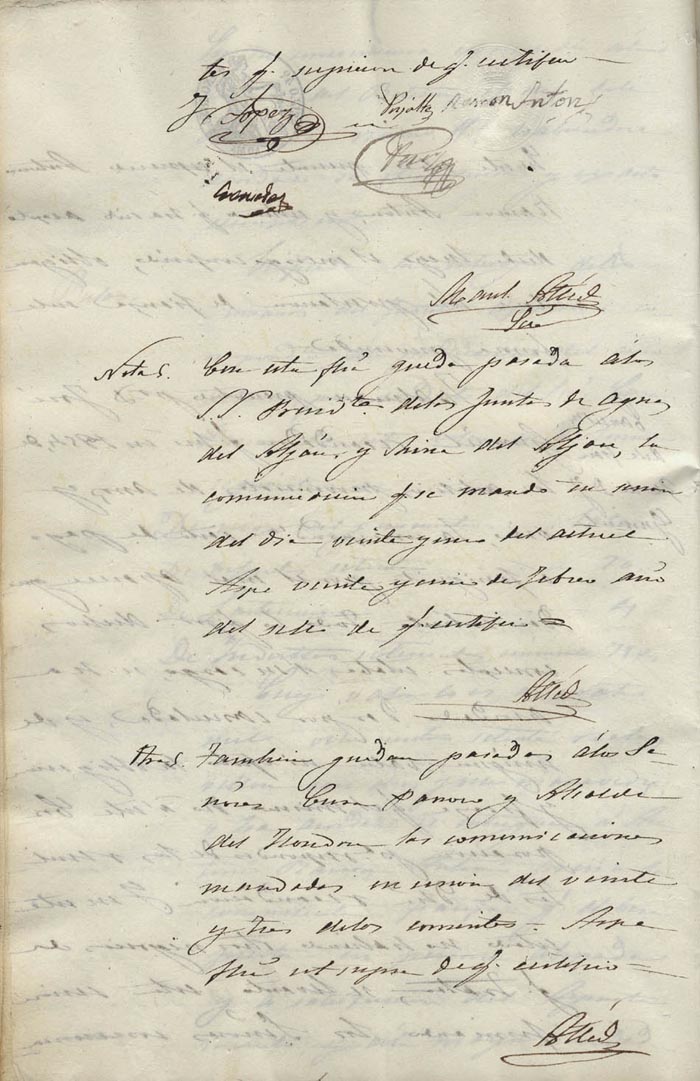 tes y supieron de q.e certifico
J. Lopez
Ramon Anton
Manl.
Srio
Nota. Con esta fha queda pasada á los
S.S. Presidte. delas Juntas de Aguas
del Aljau, y Mina del Aljau, la
comunicacion q.e se mandó en sesion
del dia veinte y uno del actual
Aspe veinte y seis de Febrero año
del sello de q.e certifico =
Otra. Tambien quedan pasadas álos Se-
ñores Cura Parroco y Alcalde
del Hondon las comunicaciones
mandadas en sesion del veinte
y tres delos corrientes. Aspe
fha ut supra de q.e certifico